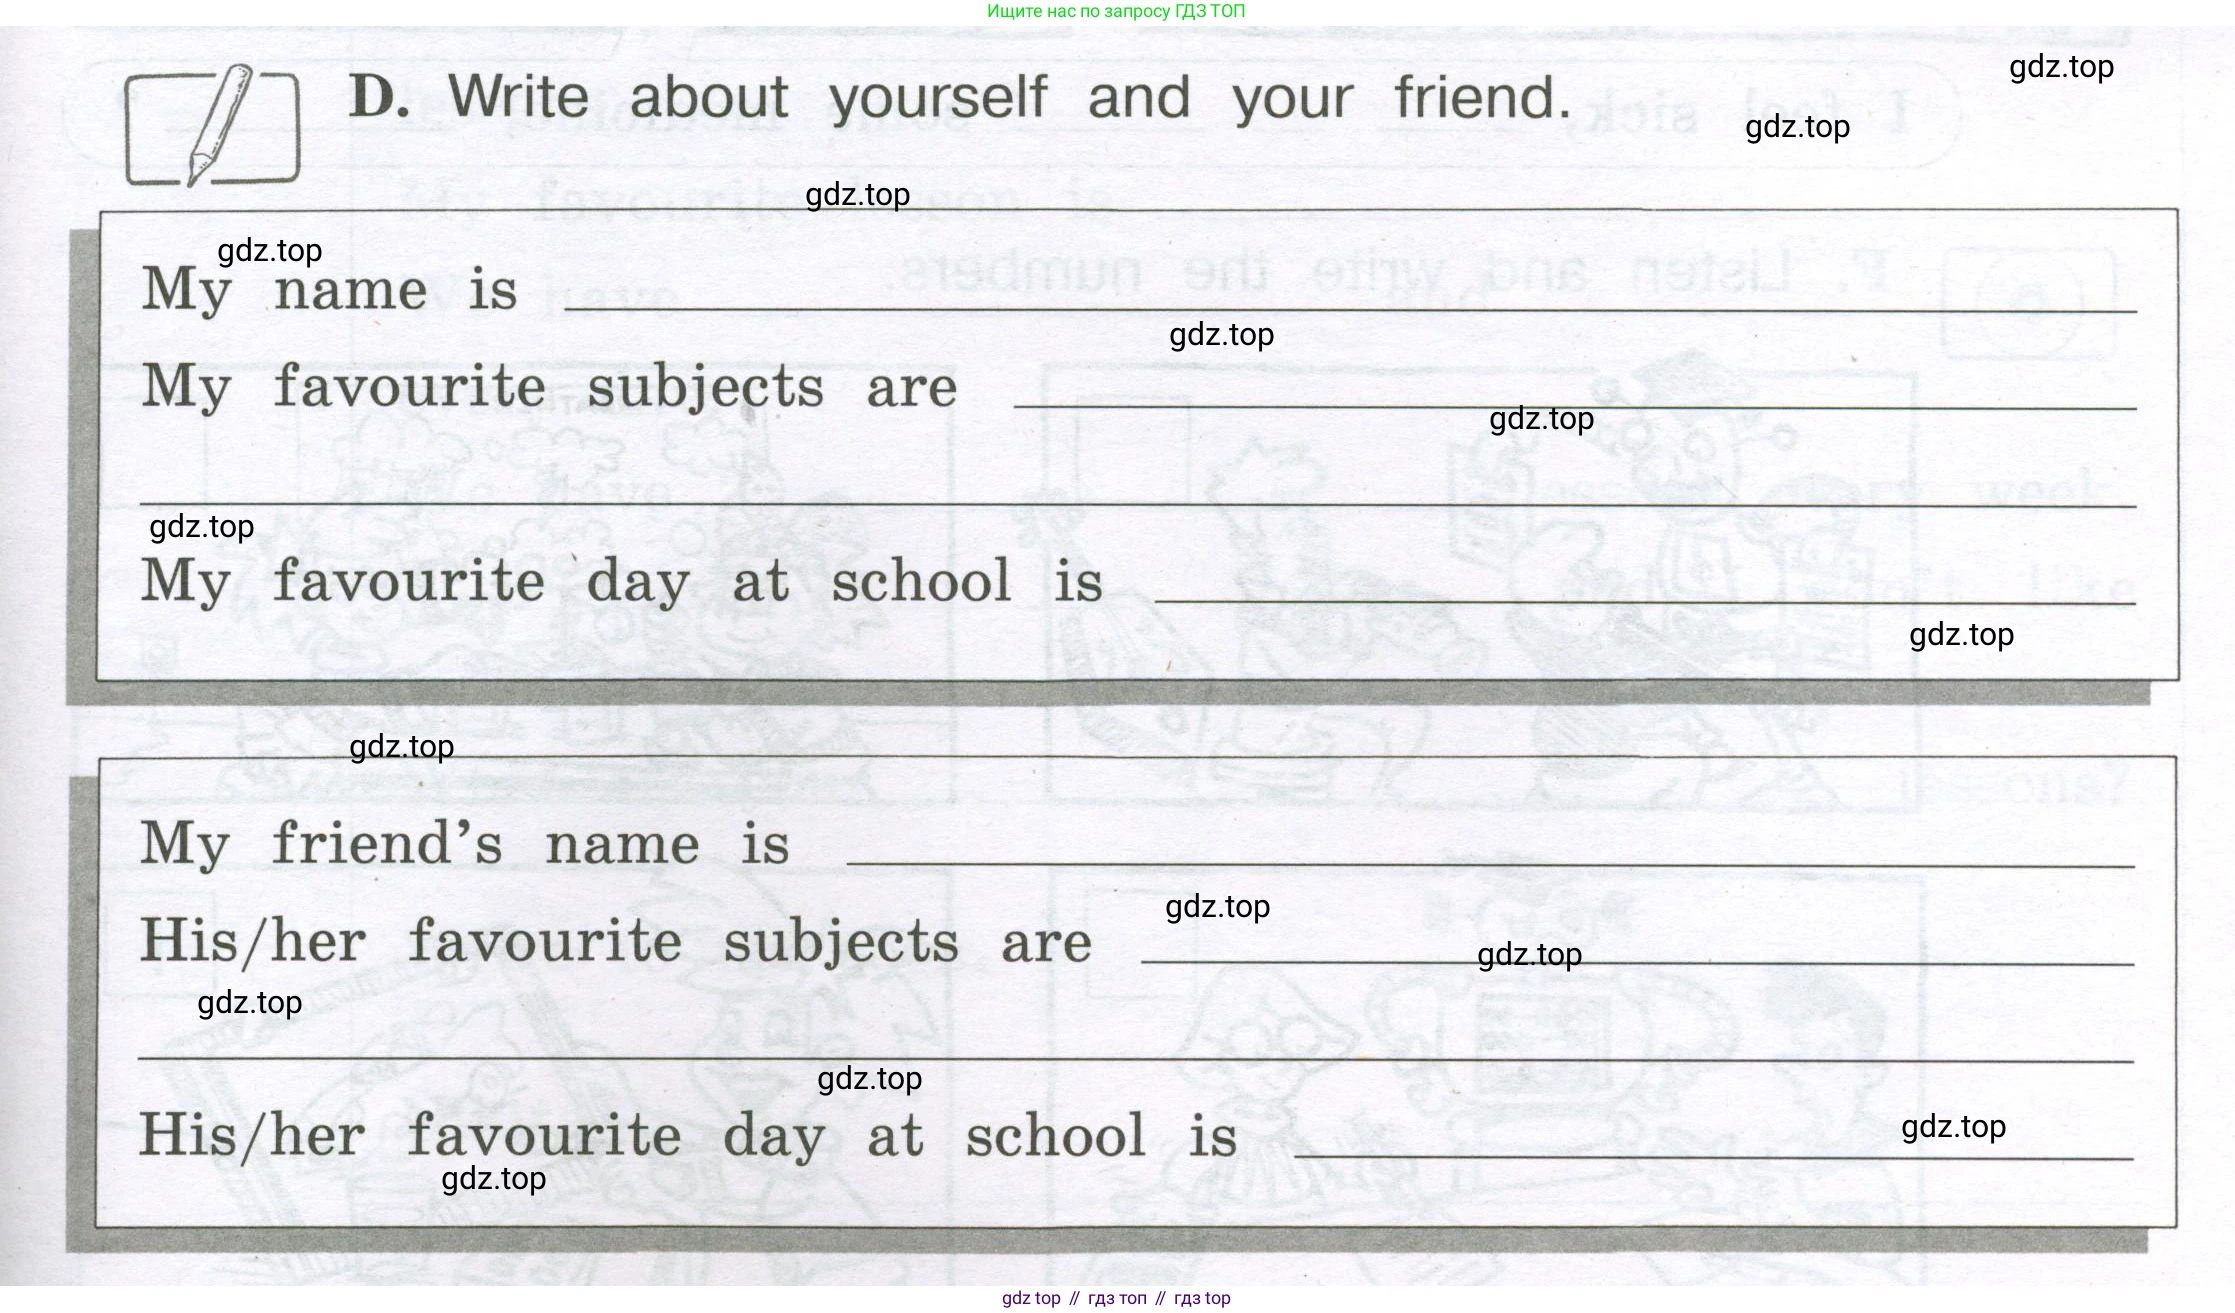 Ищите нас по запросу ГДЗ ТОП
gdz.top
D. Write about yourself and your friend.
gdz.top
gdz.top
gdz.top
My name is
gdz.top
My favourite subjects are
gdz.top
gdz.top
My favourite day at school is
gdz.top
gdz.top
My friend's name is
gdz.top
His/her favourite subjects are
gdz.top
gdz.top
gdz.top
gdz.top
His/her favourite day at school is
gdz.top
gdz top // гдз топ // гдз top